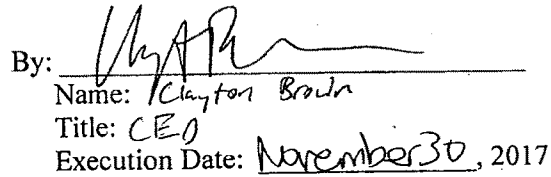 By:
Name: Clayton Brown
Title: CEO
Execution Date: November 30, 2017